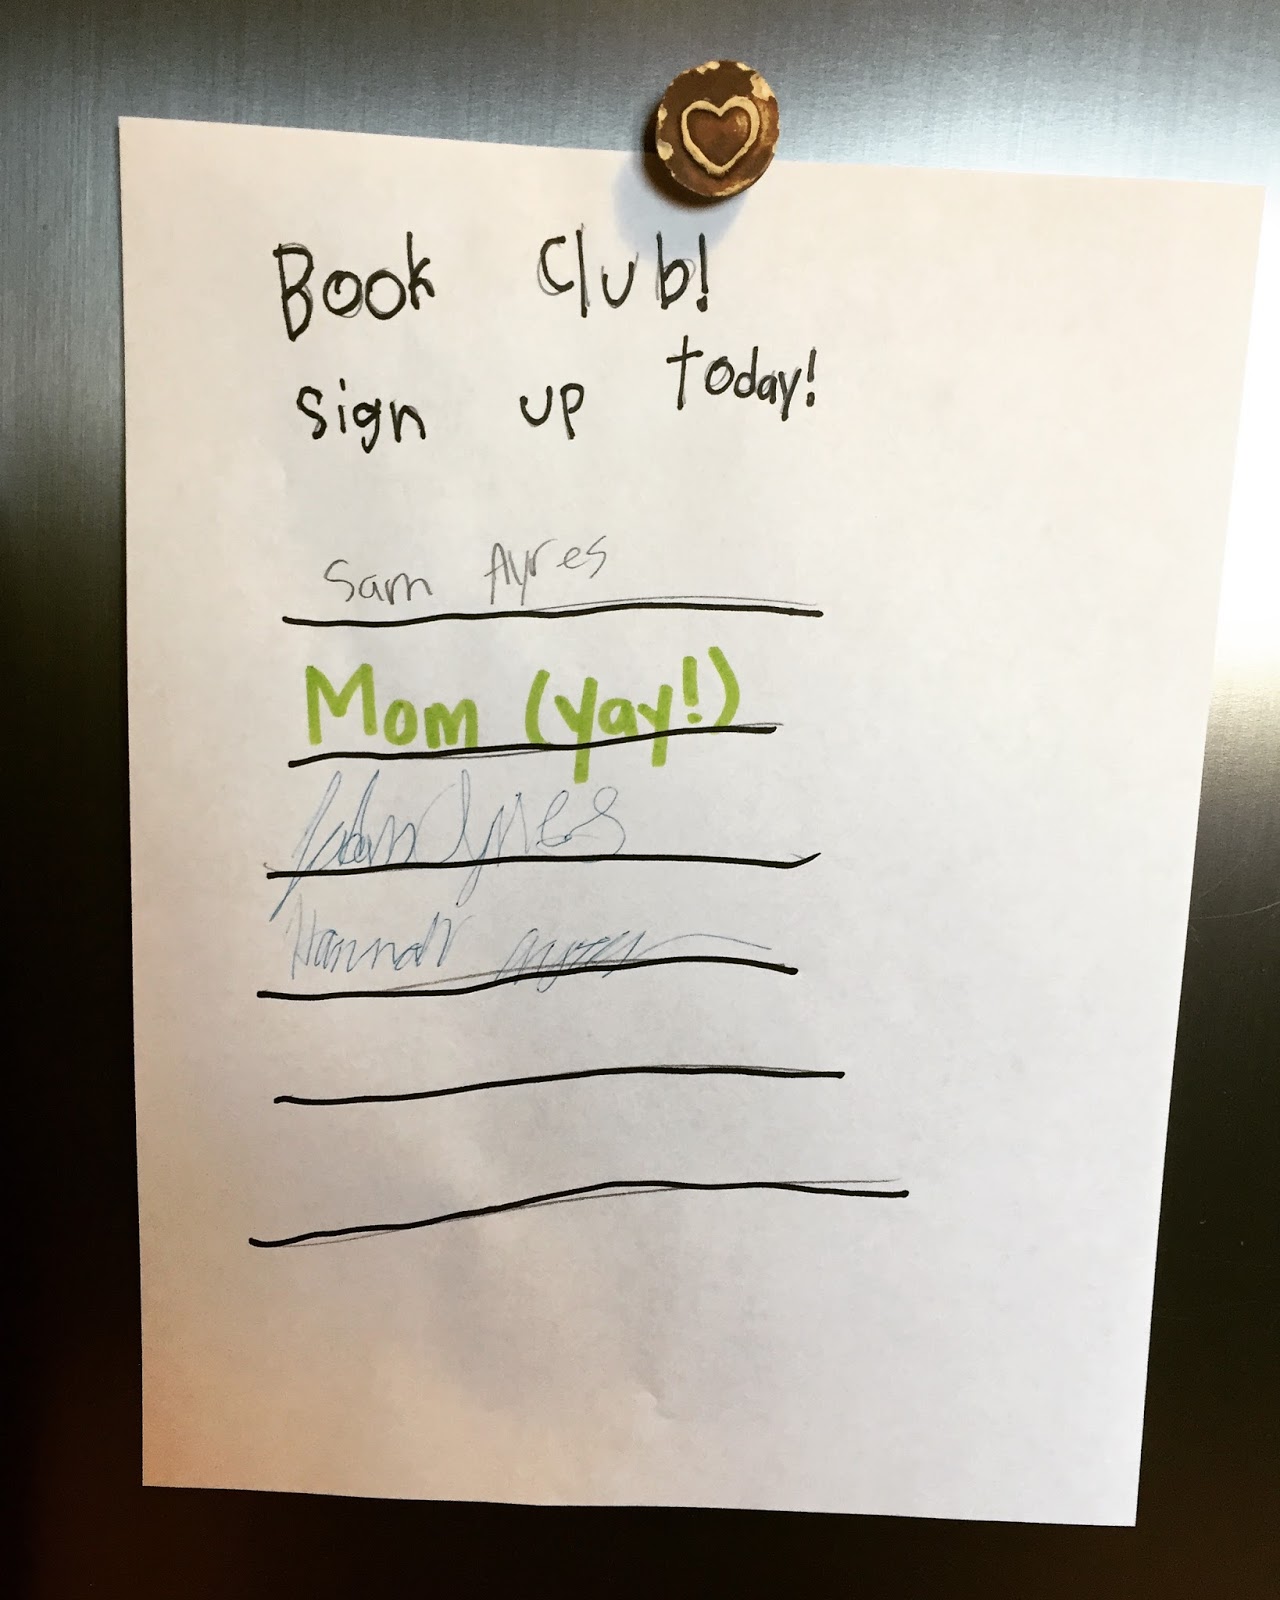 Book Club!
sign up today!
Sam Ayres
Mom (yay!)
Ayres
Hannah Ayres